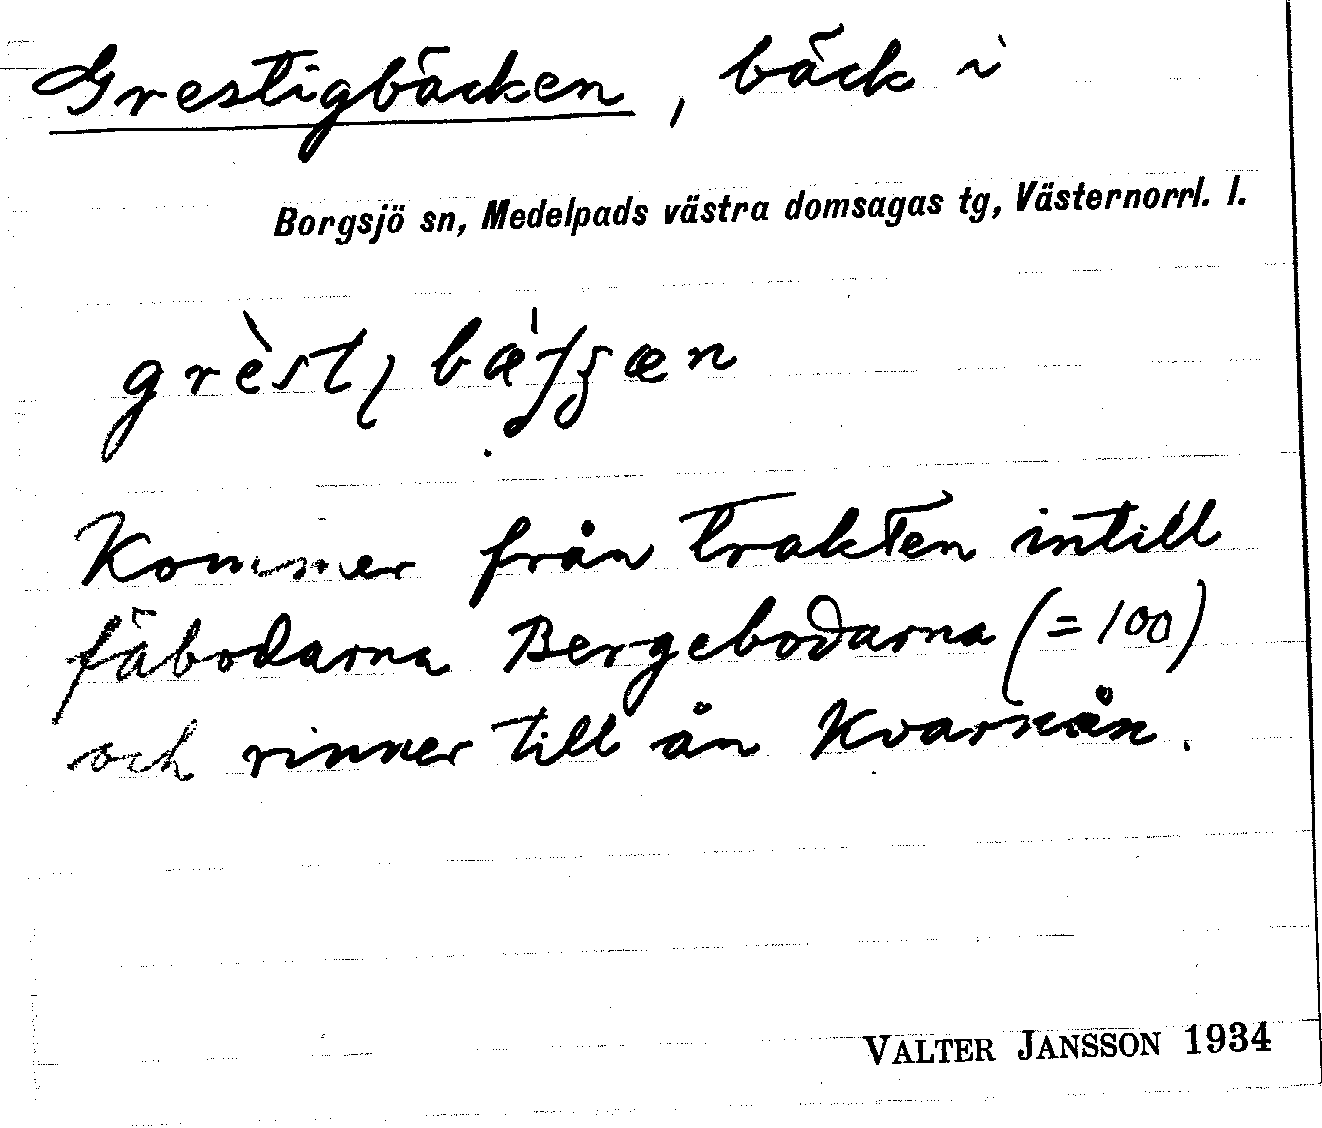 Grestigbäcken, bäck i
Borgsjö sn, Medelpads västra domsagas tg, Västernorrl. l.
Kommer från trakten intill
fäbodarna Bergebodarna (= 100)
och rinner till ån Kvarnån.
VALTER JANSSON 1934